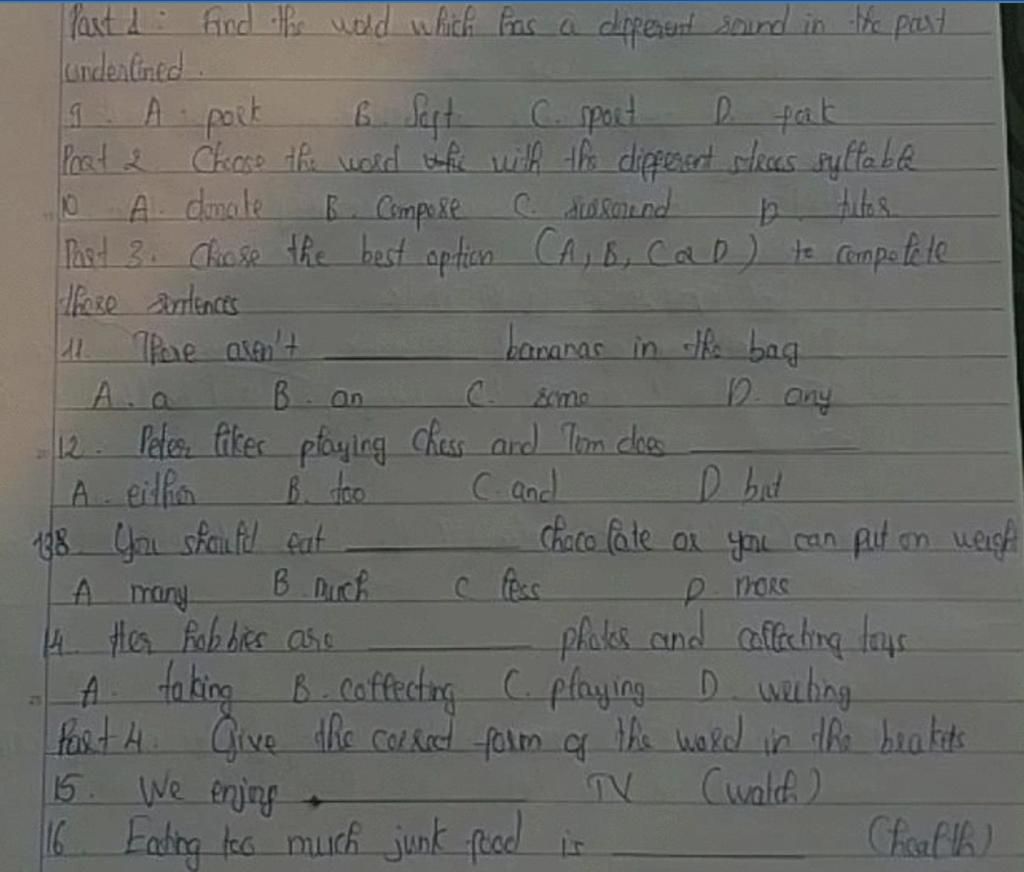 Part 1: Find the word which has a different sound in the part
underlined.
9. A. pork B. sept C. sport D. fork
Part 2 Choose the word with the different stress syllable
10 A. donate B. Compose C. surround D. tutor
Part 3: Choose the best option (A, B, C or D) to compelete
those sentences
11. There aren't ______ bananas in the bag
A. a B. an C. some D. any
12. Peter likes playing Chess and Tom does ______
A. either B. too C. and D but
13. You should eat ______ chocolate or you can put on weight
A many B much C less D. more
14. Her hobbies are ______ photos and collecting toys
A. taking B. collecting C. playing D. writing
Part 4. Give the correct form of the word in the brakets
15. We enjoy ______ TV (watch)
16. Eating too much junk food is ______ (health)